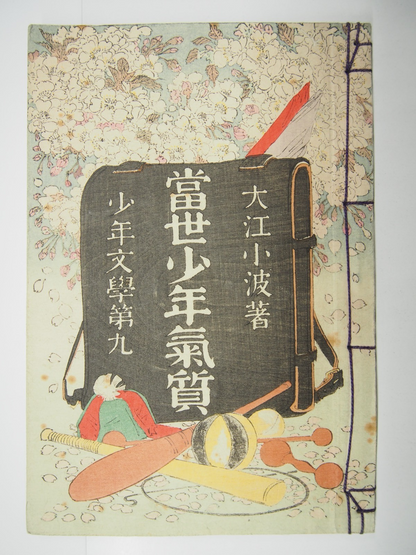 大江小波著
當世少年氣質
少年文學第九